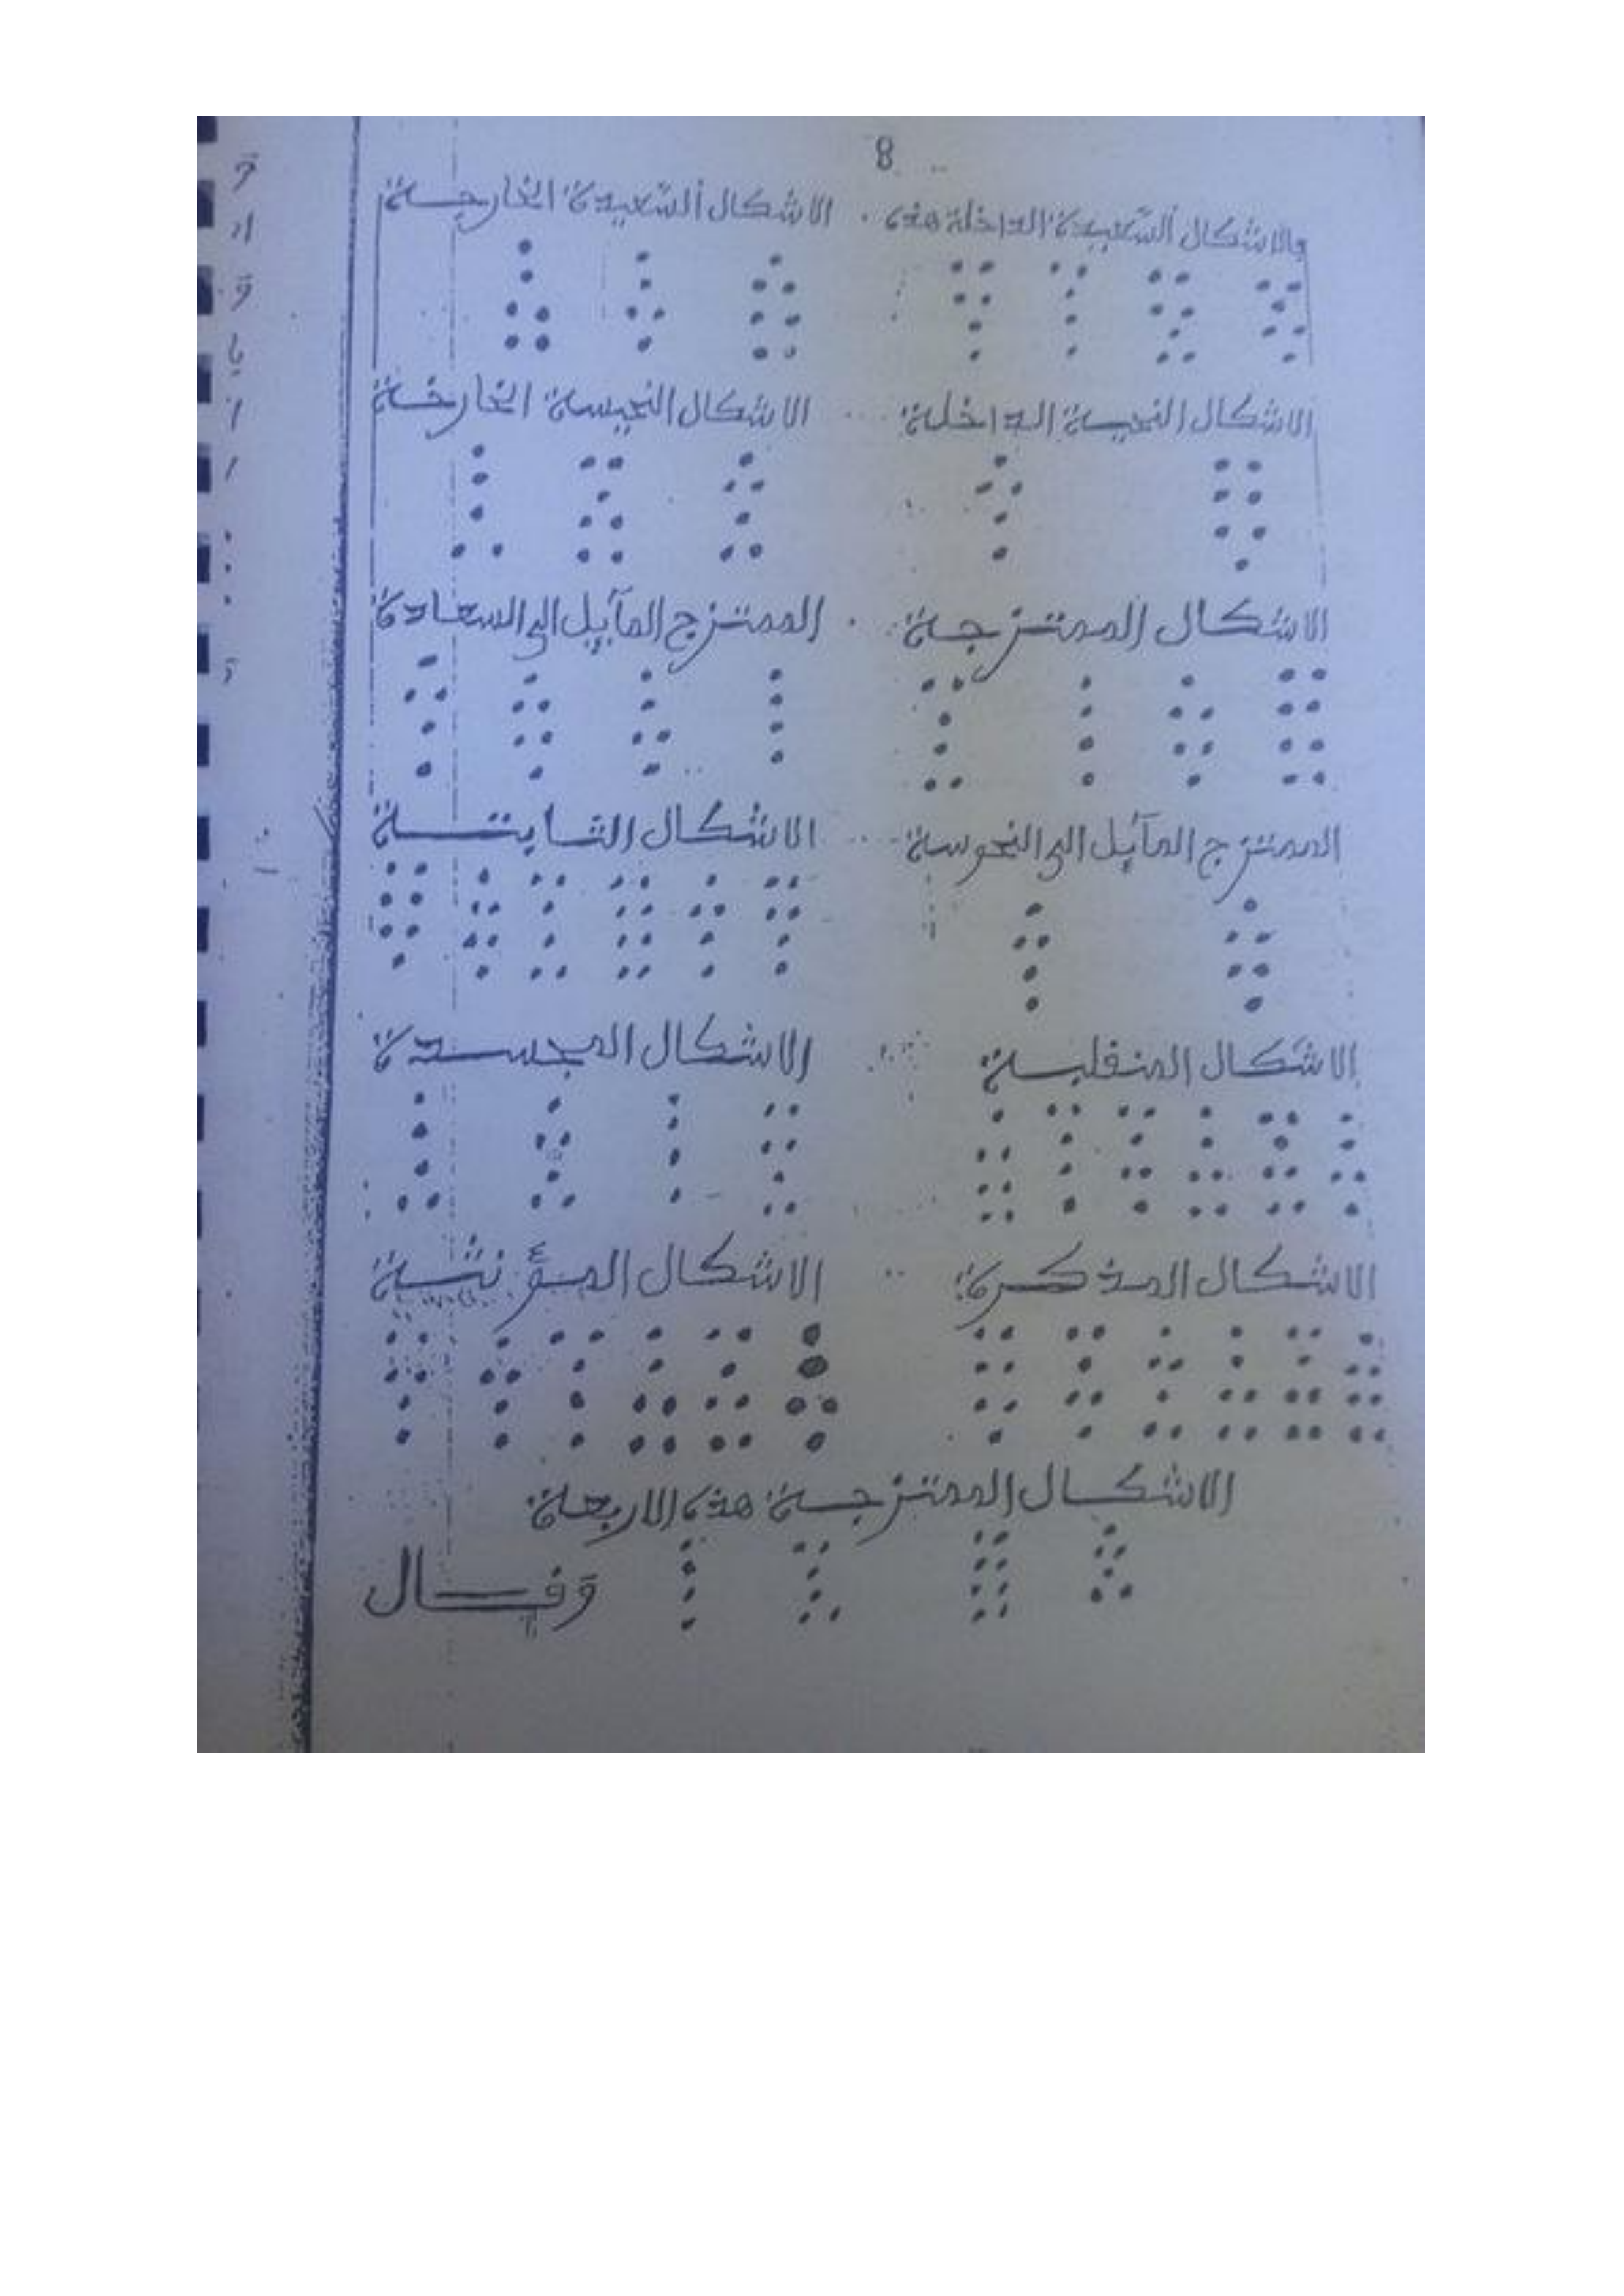 8
والاشكال السّعيدة الداخلة هذه . الاشكال السّعيدة الخارجة
الاشكال النحيسة الداخلة . الاشكال النحيسة الخارجة
الاشكال الممتزجة . الممتزج المآيل الى السعادة
الممتزج المآيل الى النحوسة . الاشكال الثابتة
الاشكال المنقلبة . الاشكال المجسدة
الاشكال المذكرة . الاشكال المؤنثة
الاشكال الممتزجة هذه الاربعة
وقال